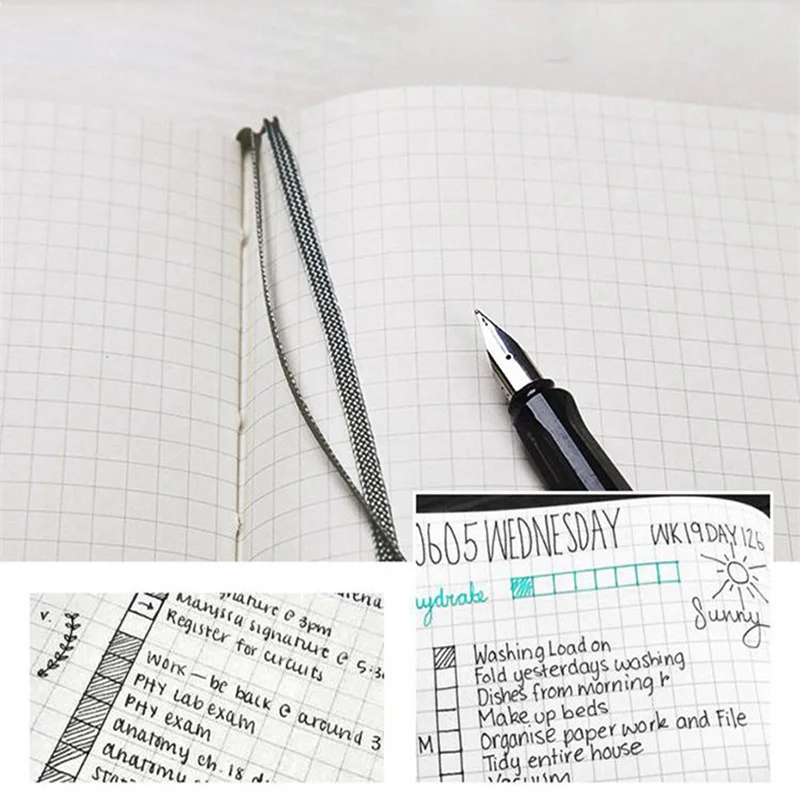 @ 3pm
Manjira signature @
Register for circuits
work — be back @ around 3
PHY Lab exam
PHY exam
anatomy ch. 18
anatomy
v.
0605 WEDNESDAY WK19 DAY 126
hydrate
Sunny
Washing Load on
Fold yesterdays washing
Dishes from morning
Make up beds
M Organise paper work and File
Tidy entire house
Vacuum